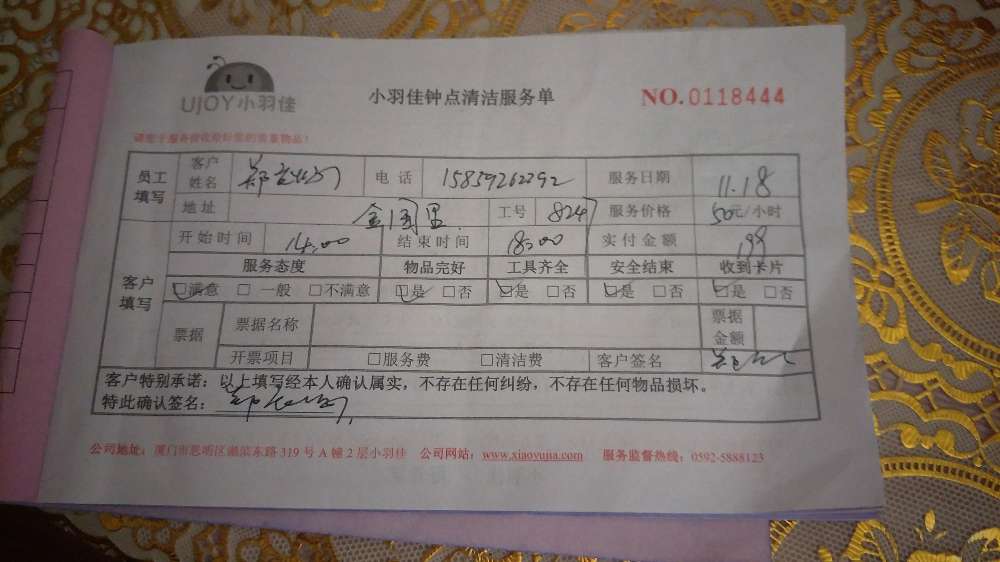 UJOY小羽佳
小羽佳钟点清洁服务单
NO.0118444
员工填写 客户姓名 郑 电话 15859262292 服务日期 11.18
地址 金国里 工号 8247 服务价格 50元/小时
客户填写 开始时间 14:00 结束时间 18:00 实付金额 198
服务态度 物品完好 工具齐全 安全结束 收到卡片
☑满意 □一般 □不满意 ☑是 □否 ☑是 □否 ☑是 □否 ☑是 □否
票据 票据名称 票据金额
开票项目 □服务费 □清洁费 客户签名
客户特别承诺：以上填写经本人确认属实，不存在任何纠纷，不存在任何物品损坏。
特此确认签名：郑
公司地址：厦门市思明区湖滨东路319号A幢2层小羽佳 公司网站：www.xiaoyujia.com 服务监督热线：0592-5888123